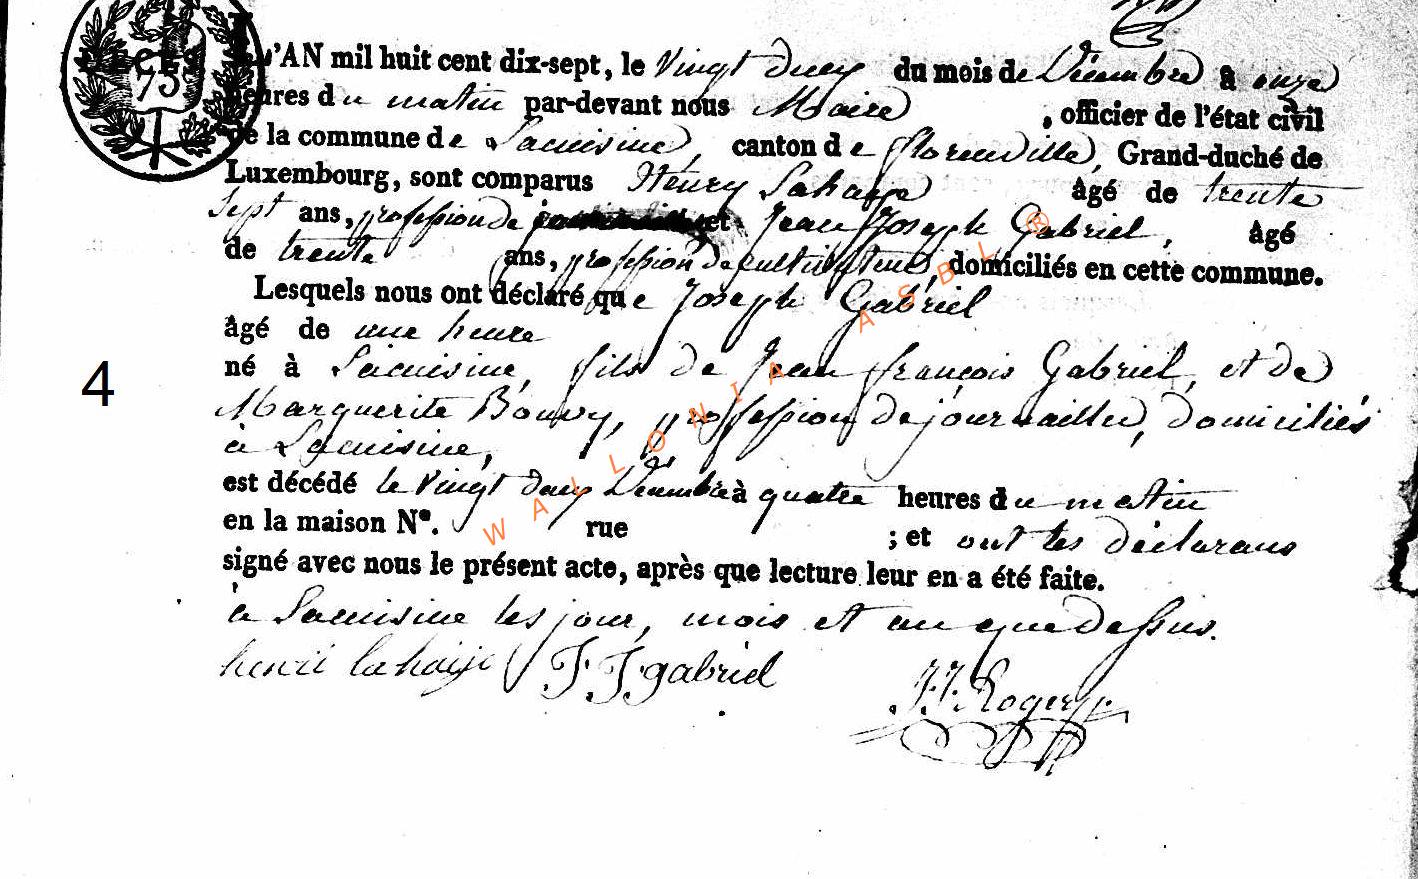 75
L'AN mil huit cent dix-sept, le Vingt deux du mois de Décembre à onze
heures du matin par-devant nous Maire, officier de l'état civil
de la commune de Lacuisine, canton de florenville, Grand-duché de
Luxembourg, sont comparus Henry Lahaye âgé de trente
sept ans, profession de et Jean Joseph Gabriel, âgé
de trente ans, profession de cultivateurs, domiciliés en cette commune.
Lesquels nous ont déclaré que Joseph Gabriel
âgé de une heure
né à Lacuisine, fils de Jean françois Gabriel, et de
4
Marguerite Bouvy, profession de journaillier, domiciliés
à Lacuisine,
est décédé le Vingt deux Décembre à quatre heures du matin
en la maison N°. rue ; et ont les déclarans
signé avec nous le présent acte, après que lecture leur en a été faite.
à Lacuisine les jour, mois et an que dessus.
henri lahaije J J gabriel
J. J. Roger
WALLONIA ASBL ®